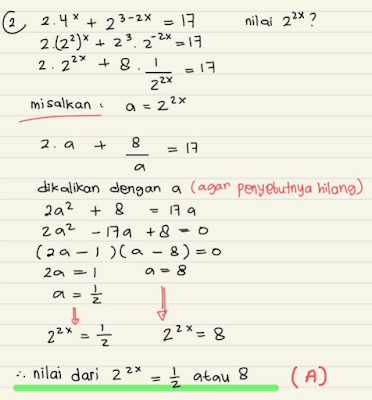 ② 2.4ˣ + 2³⁻²ˣ = 17 nilai 2²ˣ ?
2.(2²)ˣ + 2³. 2⁻²ˣ = 17
2. 2²ˣ + 8 . 1/2²ˣ = 17
misalkan : a = 2²ˣ
2. a + 8/a = 17
dikalikan dengan a (agar penyebutnya hilang)
2a² + 8 = 17a
2a² - 17a + 8 = 0
(2a - 1)(a - 8) = 0
2a = 1 a = 8
a = 1/2
2²ˣ = 1/2 2²ˣ = 8
∴ nilai dari 2²ˣ = 1/2 atau 8 (A)